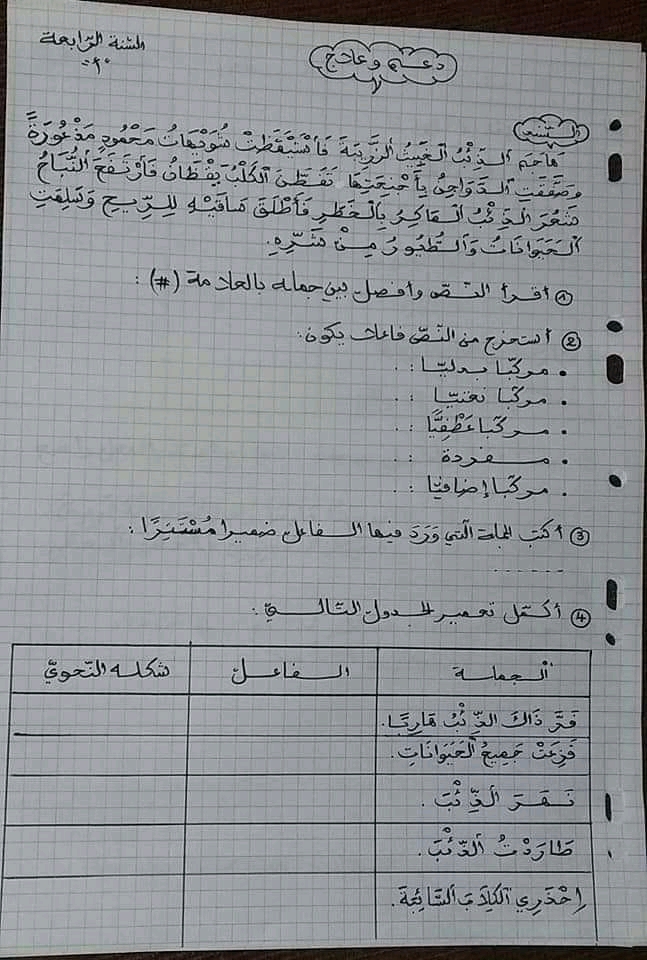 السّنة الرّابعة
-١-
دعم وعلاج
السّند
هَاجَمَ الذِّئْبُ الخَبِيثُ الزَّرِيبَةَ فَاسْتَيْقَظَتْ شُوَيْهَاتُ مَحْمُودٍ مَذْعُورَةً
وَصَفَّقَتِ الدَّوَاجِنُ بِأَجْنِحَتِهَا تَفَطَّنَ الكَلْبُ يَقْظَانُ فَارْتَفَعَ النُّبَاحُ
شَعَرَ الذِّئْبُ المَاكِرُ بِالخَطَرِ فَأَطْلَقَ سَاقَيْهِ لِلرِّيحِ وَسَلِمَتِ
الحَيَوَانَاتُ وَالطُّيُورُ مِنْ شَرِّهِ.
① أقرأ النّصّ وأفصل بين جمله بالعلامة (#) :
② أستخرج من النّصّ فاعلا يكون:
• مركّبا بدليّا : .
• مركّبا نعتيّا : .
• مركّبا عَطْفِيًّا : .
• مفردة : .
• مركّبا إضافيّا : .
③ أكتب الجملة الّتي وَرَدَ فيها الفاعل ضميرا مُسْتَتِرًا :
------
④ أكمّل تعمير الجدول التّالي :
الجملة الفاعل شكله النّحويّ
فَرَّ ذَاكَ الذِّئْبُ هَارِبًا.
فَزِعَتْ جَمِيعُ الحَيَوَانَاتِ.
نَهَرَ الذِّئْبَ.
طَارَدْتُ الذِّئْبَ.
اِحْذَرِي الكِلَابَ السَّائِبَةَ.